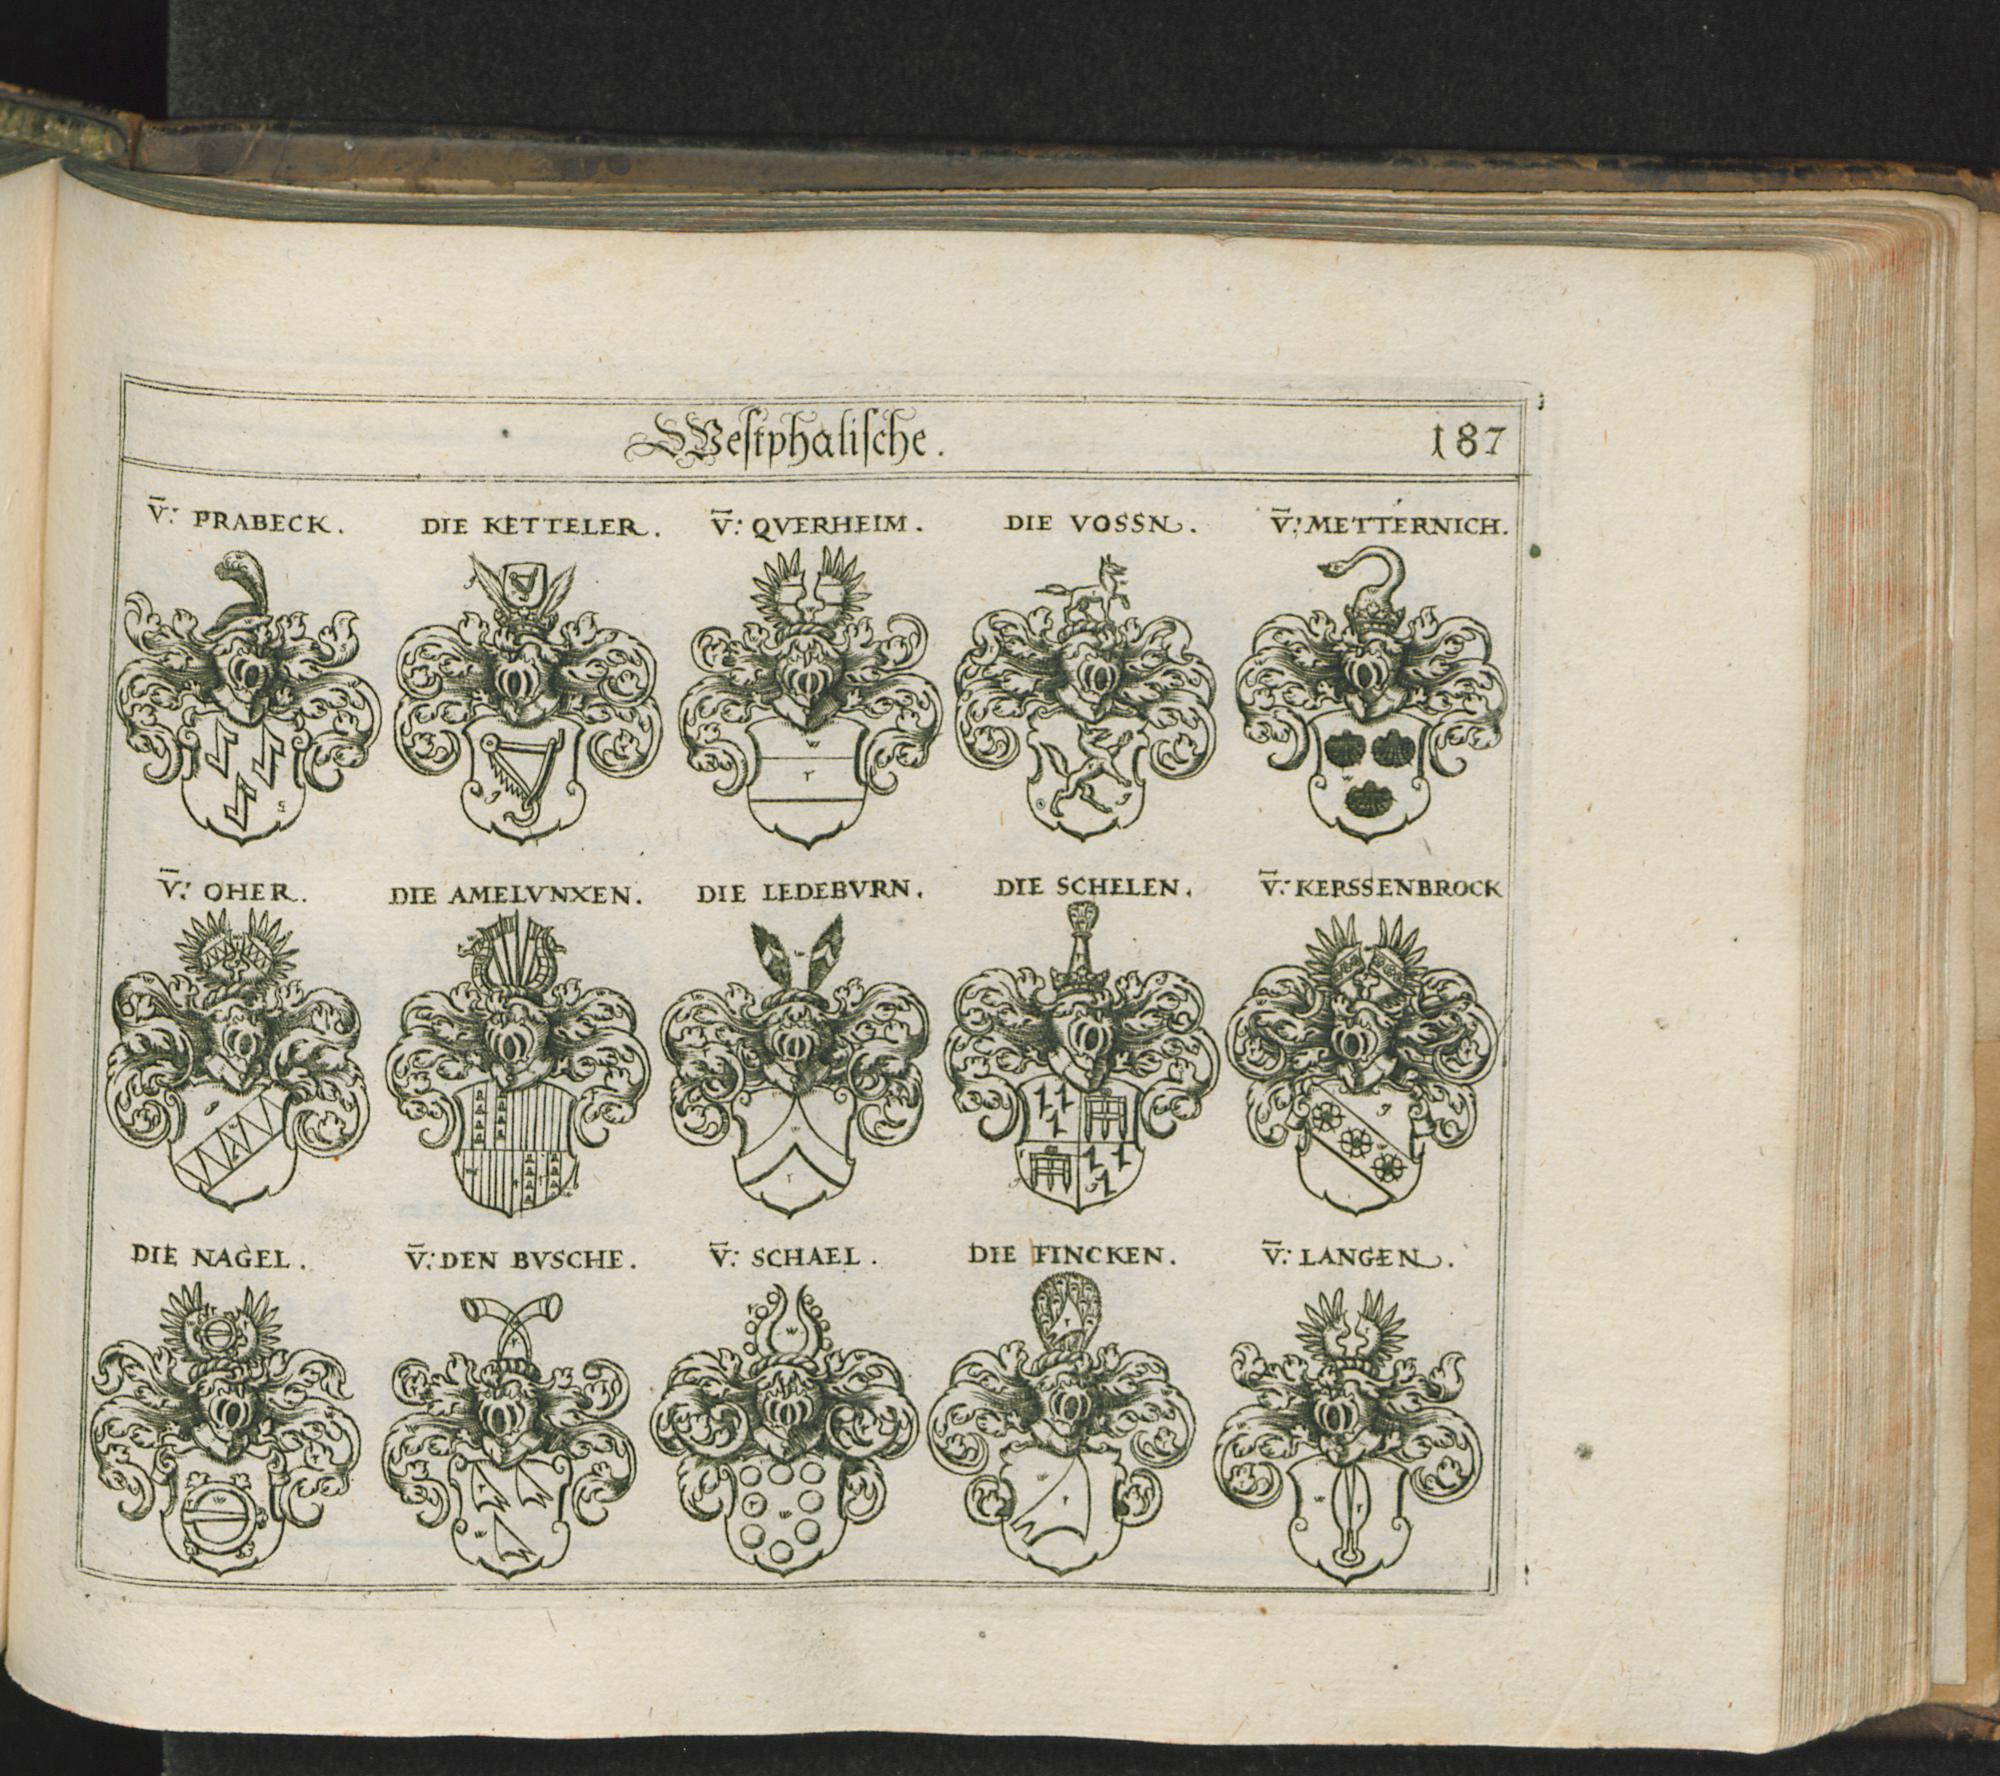 Westphalische. 187
V̄: PRABECK. DIE KETTELER. V̄: QVERHEIM. DIE VOSSN. V̄: METTERNICH.
V̄: OHER. DIE AMELVNXEN. DIE LEDEBVRN. DIE SCHELEN. V̄: KERSSENBROCK
DIE NAGEL. V̄: DEN BVSCHE. V̄: SCHAEL. DIE FINCKEN. V̄: LANGEN.